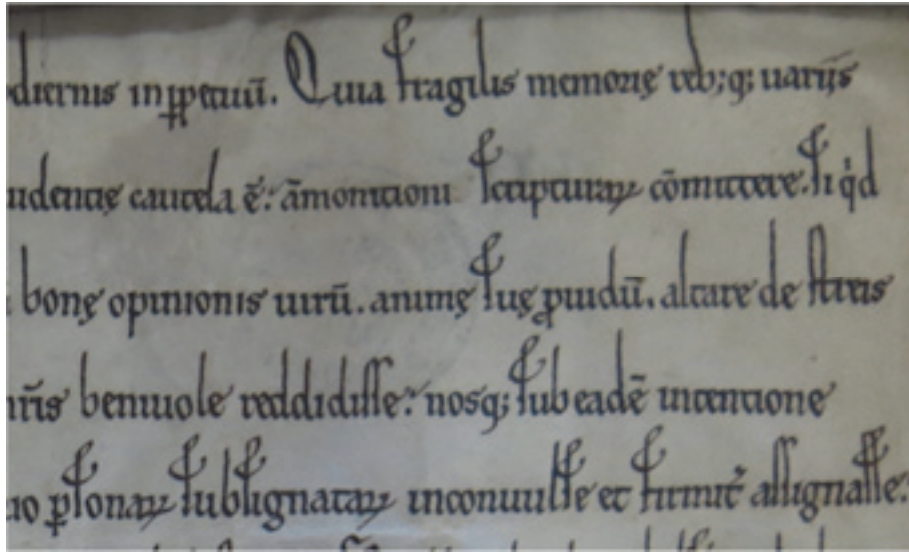 diernis inꝑpetuū. Quia fragilis memorię reb;q; uarijs
udentię cautela ē: āmonitioni scripturaꝝ cōmittere. si qͥd
bonę opinionis uirū. animę suę ꝓuidū. altare de streis
nr̄is beniuole reddidisse: nosq; sub eadē intentione
ꝑsonaꝝ subsignataꝝ inconuulse et firmit̄ assignasse: